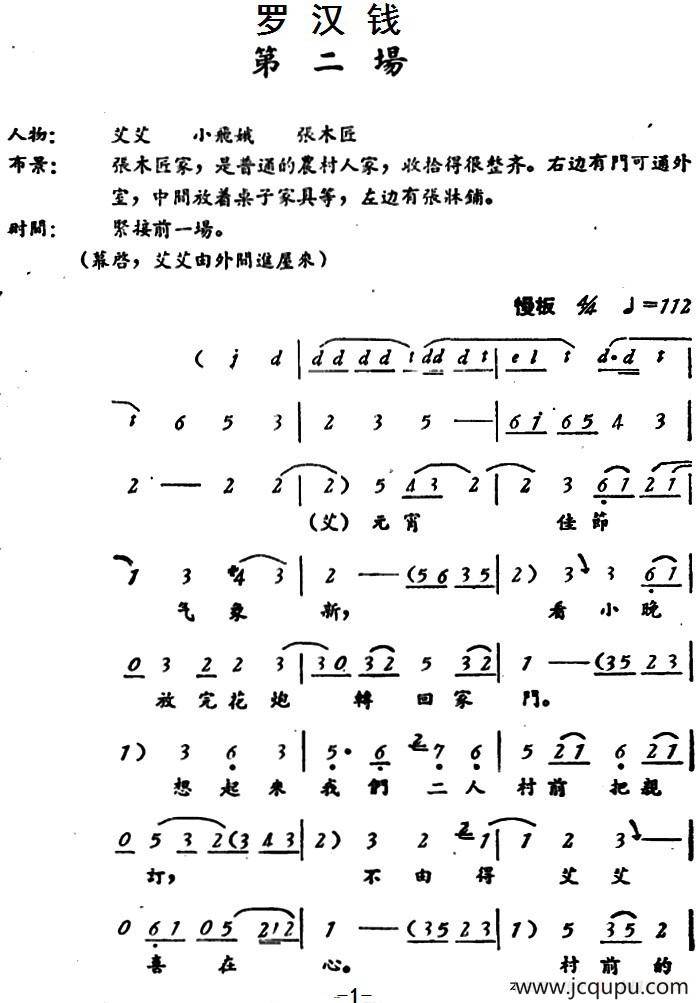 罗汉钱
第二場
人物： 艾艾 小飛娥 張木匠
布景： 張木匠家，是普通的農村人家，收拾得很整齐。右边有門可通外
室，中間放着桌子家具等，左边有張牀鋪。
时間： 緊接前一場。
（幕啓，艾艾由外間進屋來）
慢板 4/4 ♩=112
( i d | d d d d t dd d t | e l t d·d t |
t 6 5 3 | 2 3 5 — | 6i 65 4 3 |
2 — 2 2 | 2) 5 43 2 | 2 3 61 21 |
（艾）元宵 佳節
1 3 #4 3 | 2 — (56 35 | 2) 3 3 61 |
气象 新， 看小晚
0 3 2 2 3 | 30 32 5 32 | 1 — (35 23 |
放完花炮 轉回家 門。
1) 3 6 3 | 5· 6 2 7 6 | 5 21 6 21 |
想起來我們二人村前把親
0 5 3 2(3 43 | 2) 3 2 2 1 | 1 2 3 — |
訂， 不由得 艾艾
0 61 05 212 | 1 — (35 23 | 1) 5 35 2 |
喜在 心。 村前的
-1-
www.jcqupu.com